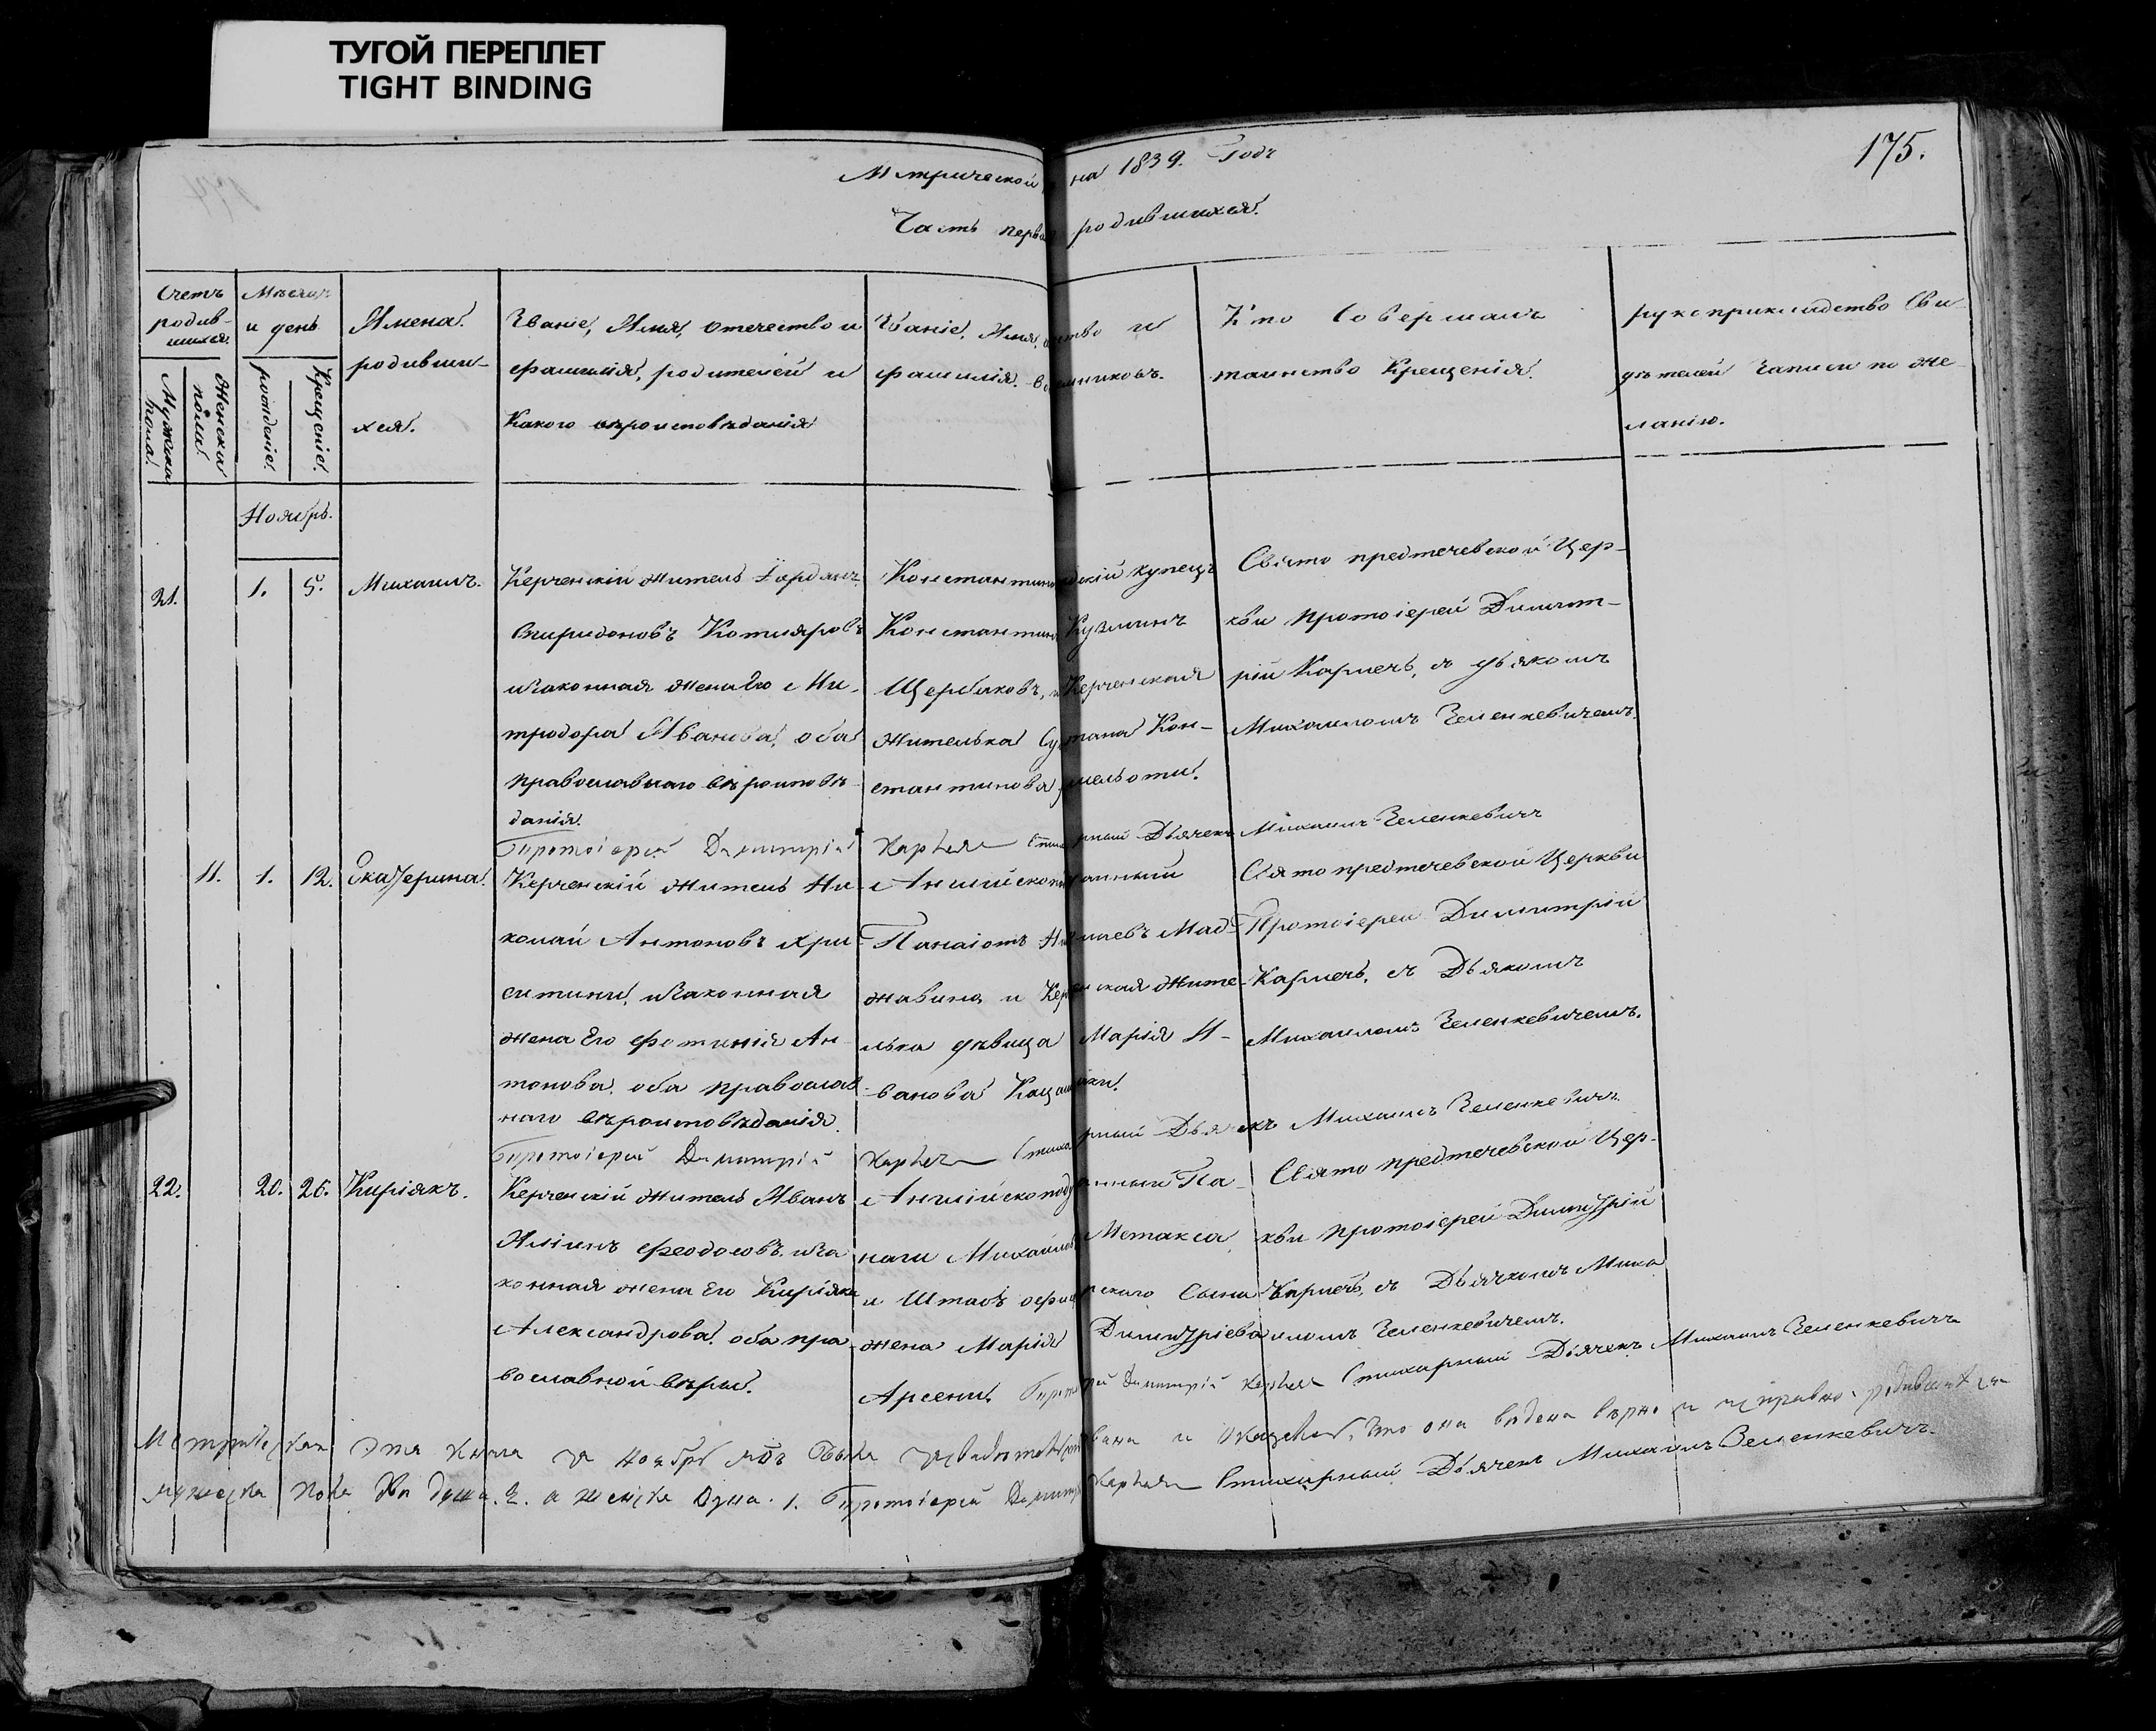 ТУГОЙ ПЕРЕПЛЕТ
TIGHT BINDING
175.
Метрической на 1839. Годъ
Часть первая родившихся.
Счетъ родив-шихся.
Мужеска пола.
Женска пола
Мѣсяцъ и день
рожденіе.
Крещеніе.
Имена
родивши-
хся.
Званіе, Имя, отечество и
фамилія, родителей и
Какого вѣроисповѣданія
Званіе, Имя, отчество и
фамилія воспріемниковъ.
Кто Совершалъ
таинство Крещенія.
рукоприкладство Сви-
дѣтелей записи по же-
ланію.
Ноябрь.
21. 1. 5. Михаилъ.
Керченскій житель
Спиридоновъ Котляровъ
и законная жена Его Ми-
тродора Иванова, оба
православнаго вѣроисповѣ-
данія.
Константинъ Кузминъ
Щербаковъ, и Керченская
жителька Кон-
стантинова
Свято предтечевской Цер-
кви протоіерей Димит-
рій съ дьякомъ
Михаиломъ Зеленкевичемъ.
Протоіерей Димитрій Стихарный Дьячекъ Михаилъ Зеленкевичъ
11. 1. 12. Екатерина.
Керченскій житель Ни-
колай Антоновъ Хри-
ситини, и законная
жена Его Фотинія Ан-
тонова, оба православ
наго вѣроисповѣданія.
Панаіотъ Мад-
жавина и Керченская жите-
лька дѣвица Марія И-
ванова
Свято предтечевской Церкви
Протоіерей Димитрій
съ Дьякомъ
Михаиломъ Зеленкевичемъ.
Протоіерей Димитрій Стихарный Дьячекъ Михаилъ Зеленкевичъ
22. 20. 26. Киріякъ.
Керченскій житель Иванъ
Феодосовъ, и за
конная жена Его Киріяки
Александрова, оба пра-
вославной вѣры.
Англійскоподданный Па-
наги Михайловъ Метакса
и Штабъ офицерскаго Сына
жена Марія Димитріева
Арсени.
Свято предтечевской Цер-
кви протоіерей Димитрій
съ Дьячкомъ Миха
иломъ Зеленкевичемъ.
Протоіерей Димитрій Стихарный Дьячекъ Михаилъ Зеленкевичъ
Метрическая эта Книга за Ноябрь мѣсяцъ была и что она ведена вѣрно и исправно. родившихся
мужеска пола два душа. 2. а женска одна. 1. Протоіерей Димитрій Стихарный Дьячекъ Михаилъ Зеленкевичъ.